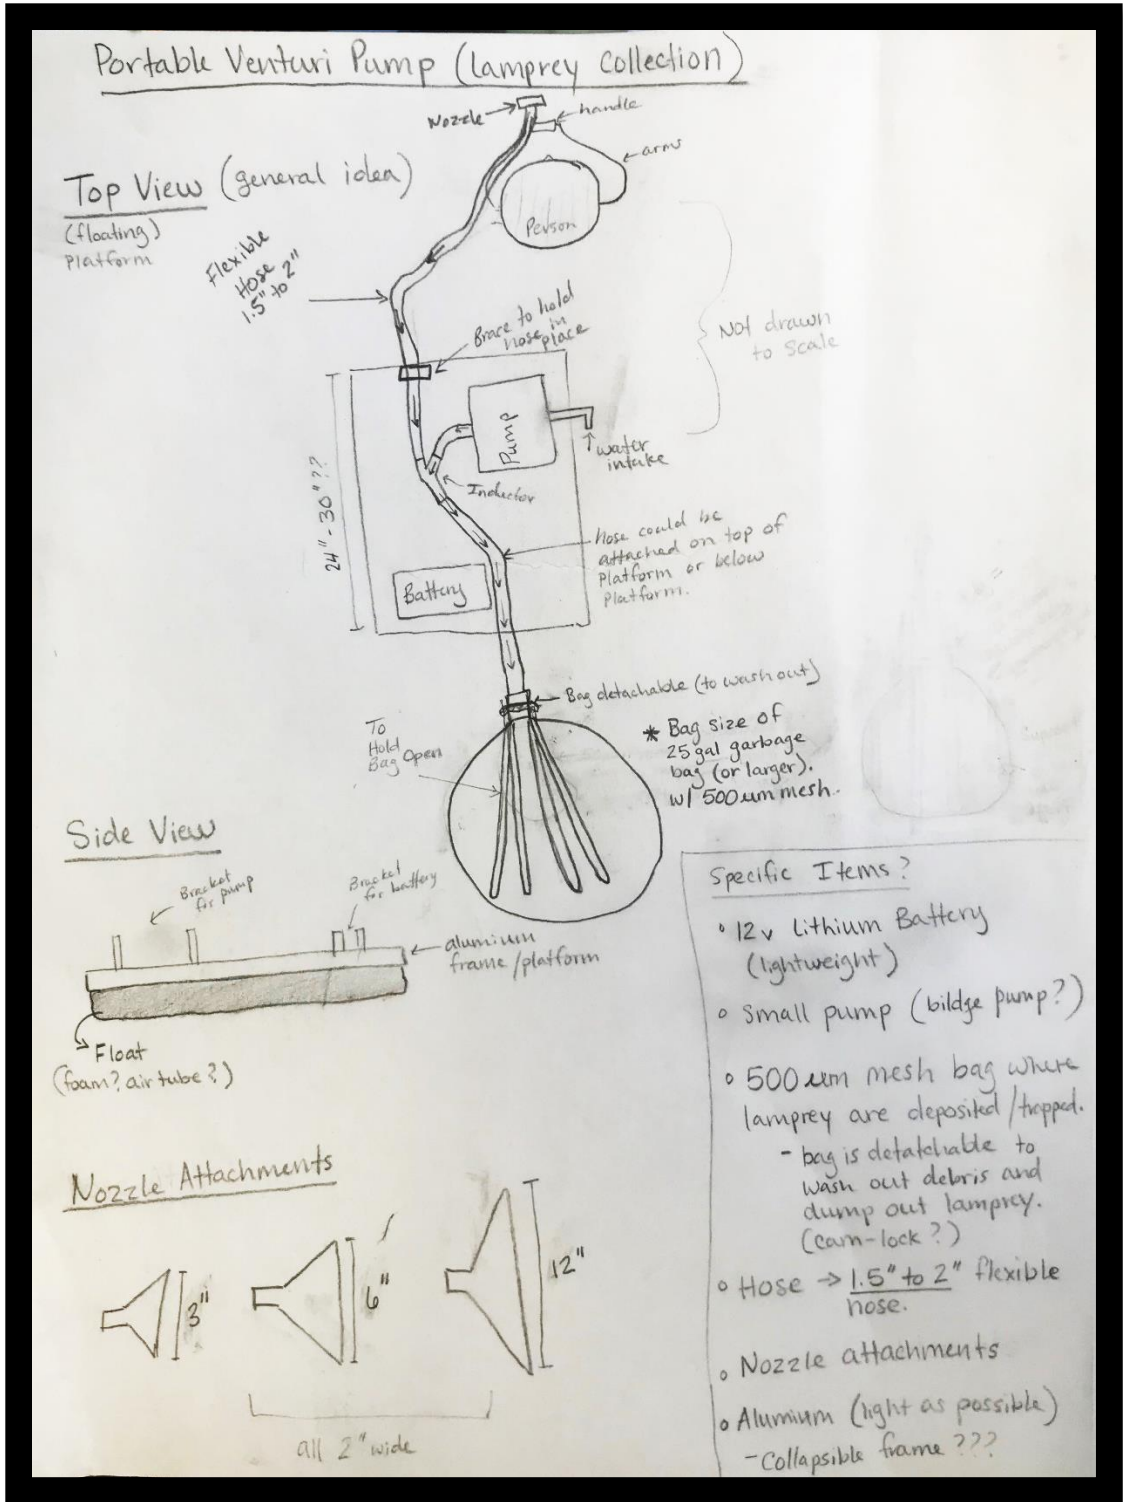 Portable Venturi Pump (lamprey collection)
Nozzle
handle
arms
Person
Top View (general idea)
(floating)
Platform
Flexible
Hose
1.5" to 2"
Brace to hold
hose in
place
Not drawn
to scale
Pump
water
intake
Inductor
24"-30"??
Hose could be
attached on top of
platform or below
platform.
Battery
Bag detachable (to wash out)
To
Hold
Bag Open
* Bag size of
25 gal garbage
bag (or larger).
w/ 500 um mesh.
Side View
Bracket
for pump
Bracket
for battery
aluminium
frame/platform
Float
(foam? air tube?)
Nozzle Attachments
3"
6"
12"
all 2" wide
Specific Items?
• 12v Lithium Battery
(lightweight)
• Small pump (bildge pump?)
• 500 um mesh bag where
lamprey are deposited/trapped.
- bag is detatchable to
wash out debris and
dump out lamprey.
(cam-lock?)
• Hose → 1.5" to 2" flexible
hose.
• Nozzle attachments
• Alumium (light as possible)
- Collapsible frame???